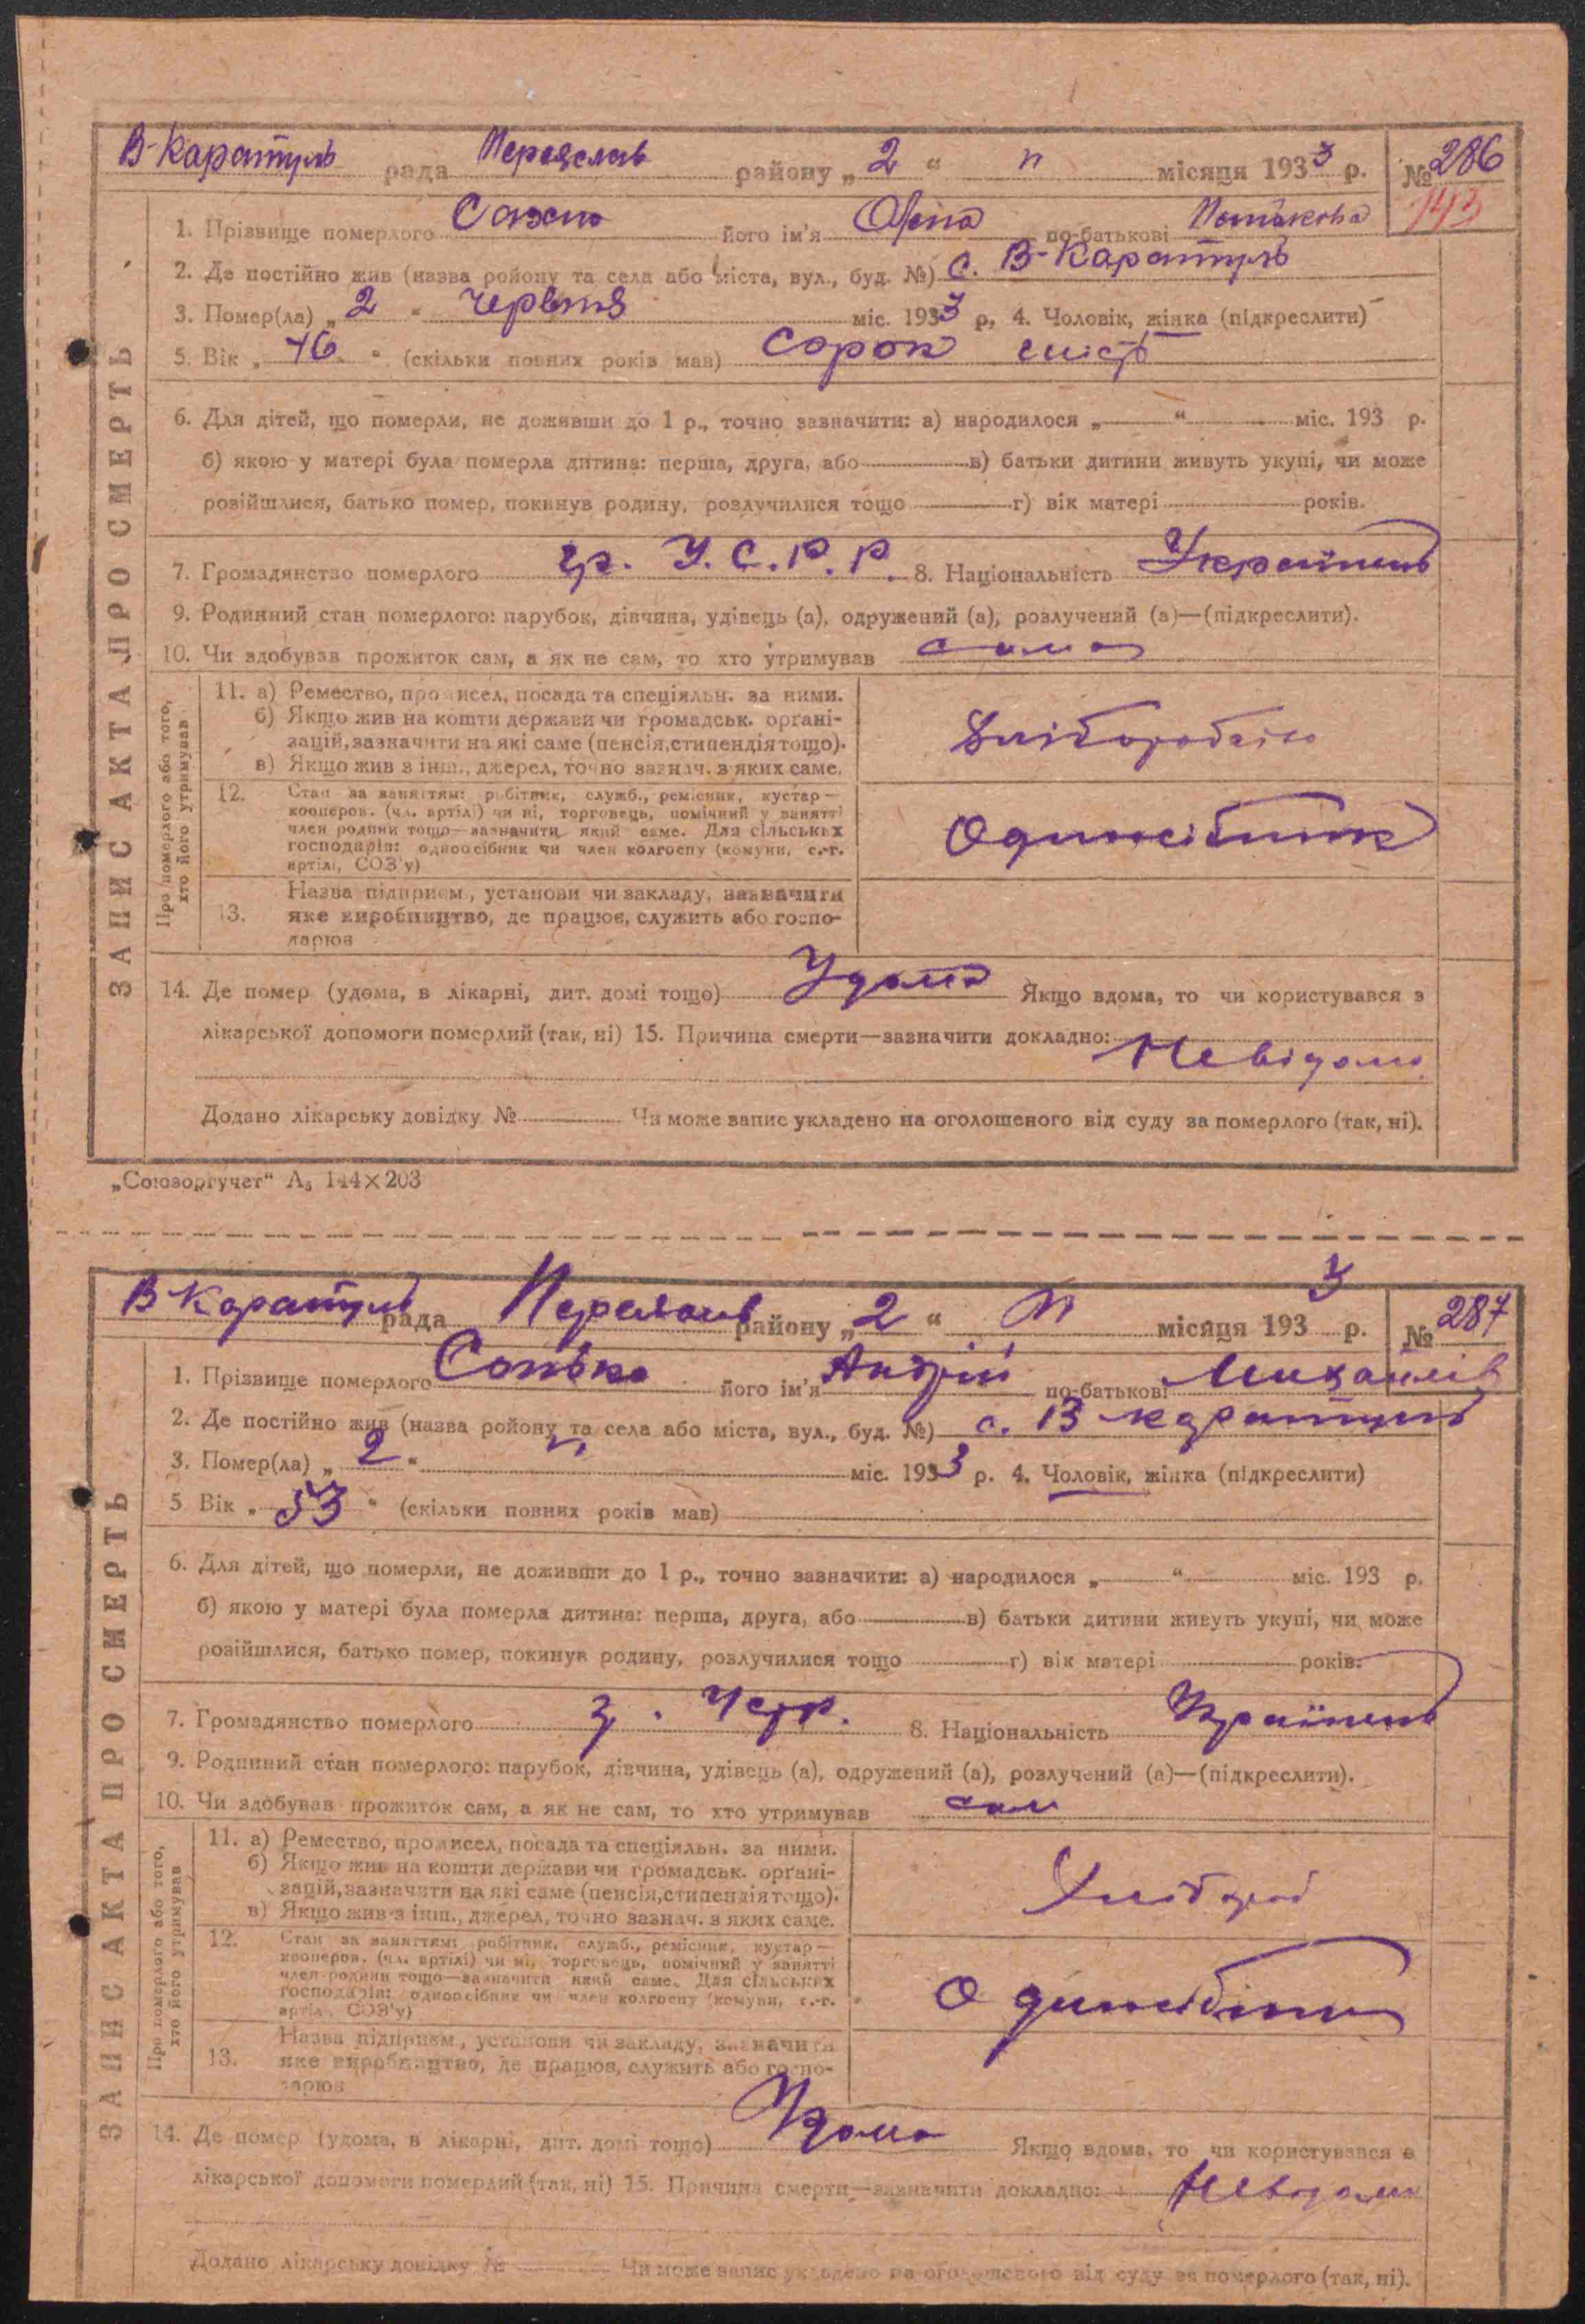 В-Каратуль рада Переяслав району „ 2 “ п місяця 1933 р. № 286
143
1. Прізвище померлого його ім'я по-батькові
2. Де постійно жив (назва ройону та села або міста, вул., буд. №) с. В-Каратуль
3. Помер(ла) „ 2 “ червня міс. 1933 р, 4. Чоловік, жінка (підкреслити)
5. Вік „ 46 “ (скільки повних років мав) Сорок шість
6. Для дітей, що померли, не доживши до 1 р., точно зазначити: а) народилося „ “ міс. 193 р.
б) якою у матері була померла дитина: перша, друга, або в) батьки дитини живуть укупі, чи може
розійшлися, батько помер, покинув родину, розлучилися тощо г) вік матері років.
7. Громадянство померлого гр. У.С.Р.Р. 8. Національність Українець
9. Родинний стан померлого: парубок, дівчина, удівець (а), одружений (а), розлучений (а)—(підкреслити).
10. Чи здобував прожиток сам, а як не сам, то хто утримував сама
ЗАПИС АКТА ПРО СМЕРТЬ
Про померлого або того,
хто його утримував
11. а) Ремество, промисел, посада та спеціяльн. за ними.
б) Якщо жив на кошти держави чи громадськ. органі-
зацій, зазначити на які саме (пенсія, стипендія тощо).
в) Якщо жив з інш., джерел, точно зазнач. з яких саме.
12. Стан за заняттям: робітник, служб., ремісник, кустар—
кооперов. (чл. артілі) чи ні, торговець, помічний у занятті
член родини тощо—зазначити який саме. Для сільських
господарів: одноосібник чи член колгоспу (комуни, с.-г.
артілі, СОЗ'у)
Одиносібник
13. Назва підприєм, установи чи закладу, зазначити
яке виробництво, де працює, служить або госпо-
дарює
14. Де помер (удома, в лікарні, дит. домі тощо) Удома Якщо вдома, то чи користувався з
лікарської допомоги померлий (так, ні) 15. Причина смерти—зазначити докладно:
Невідомо
Додано лікарську довідку № Чи може запис укладено на оголошеного від суду за померлого (так, ні).
„Союзоргучет“ А₅ 144×203
В-Каратуль рада району „ 2 “ п місяця 1933 р. № 287
1. Прізвище померлого його ім'я Андрій по-батькові
2. Де постійно жив (назва ройону та села або міста, вул., буд. №) с. В-Каратуль
3. Помер(ла) „ 2 “ міс. 1933 р. 4. Чоловік, жінка (підкреслити)
5 Вік „ 53 “ (скільки повних років мав)
6. Для дітей, що померли, не доживши до 1 р., точно зазначити: а) народилося „ “ міс. 193 р.
б) якою у матері була померла дитина: перша, друга, або в) батьки дитини живуть укупі, чи може
розійшлися, батько помер, покинув родину, розлучилися тощо г) вік матері років.
7. Громадянство померлого 8. Національність Українець
9. Родинний стан померлого: парубок, дівчина, удівець (а), одружений (а), розлучений (а)—(підкреслити).
10. Чи здобував прожиток сам, а як не сам, то хто утримував сам
ЗАПИС АКТА ПРО СМЕРТЬ
Про померлого або того,
хто його утримував
11. а) Ремество, промисел, посада та спеціяльн. за ними.
б) Якщо жив на кошти держави чи громадськ. органі-
зацій, зазначити на які саме (пенсія, стипендія тощо).
в) Якщо жив з інш., джерел, точно зазнач. з яких саме.
12. Стан за заняттям: робітник, служб., ремісник, кустар—
кооперов. (чл. артілі) чи ні, торговець, помічний у занятті
член родини тощо—зазначити який саме. Для сільських
господарів: одноосібник чи член колгоспу (комуни, с.-г.
артілі, СОЗ'у)
13. Назва підприєм, установи чи закладу, зазначити
яке виробництво, де працює, служить або госпо-
дарює
14. Де помер (удома, в лікарні, дит. домі тощо) Удома Якщо вдома, то чи користувався з
лікарської допомоги померлий (так, ні) 15. Причина смерти—зазначити докладно: Невідомо
Додано лікарську довідку № Чи може запис укладено на оголошеного від суду за померлого (так, ні).